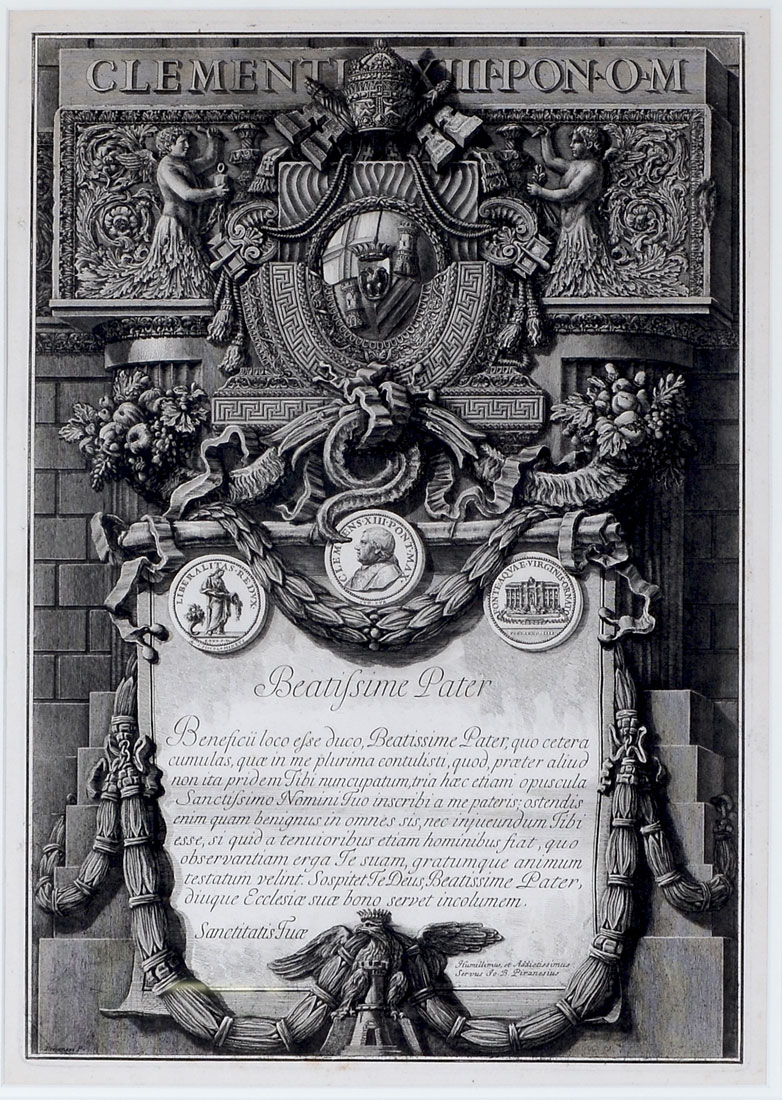 CLEMENTI XIII·PON·O·M
CLEMENS·XIII·PONT·MA
LIBERALITAS·REDVX
FONTE AQVAE·VIRGINIS ORNATO
Beatiſsime Pater
Beneficii loco eſse duco, Beatissime Pater, quo cetera
cumulas, quæ in me plurima contulisti, quod, præter aliud
non ita pridem Tibi nuncupatum, tria hæc etiam opuscula
Sanctiſsimo Nomini Tuo inscribi a me pateris; ostendis
enim quam benignus in omnes sis, nec injucundum Tibi
esse, si quid a tenuioribus etiam hominibus fiat, quo
observantiam erga Te suam, gratumque animum
testatum velint. Sospitet Te Deus, Beatissime Pater,
diuque Ecclesiæ suæ bono servet incolumem.
Sanctitatis Tuæ
Humillimus, et Addictissimus
Servus Jo. B. Piranesius
Piranesi F.